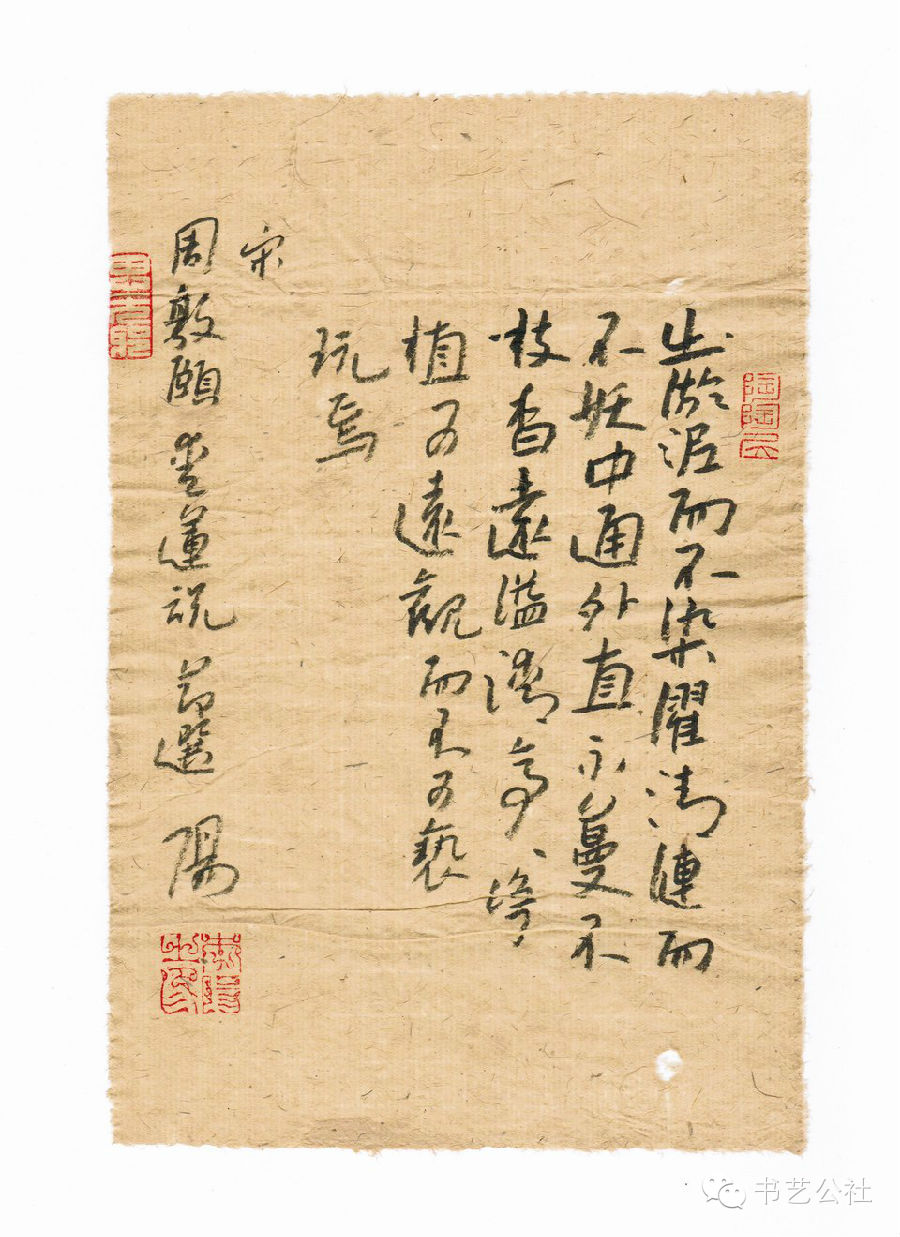 出淤泥而不染濯清漣而
不妖中通外直不蔓不
枝香遠溢清亭、淨
植可遠觀而不可褻
玩焉
宋
周敦頤 愛蓮說 節選 陽
陶陶云
书艺公社